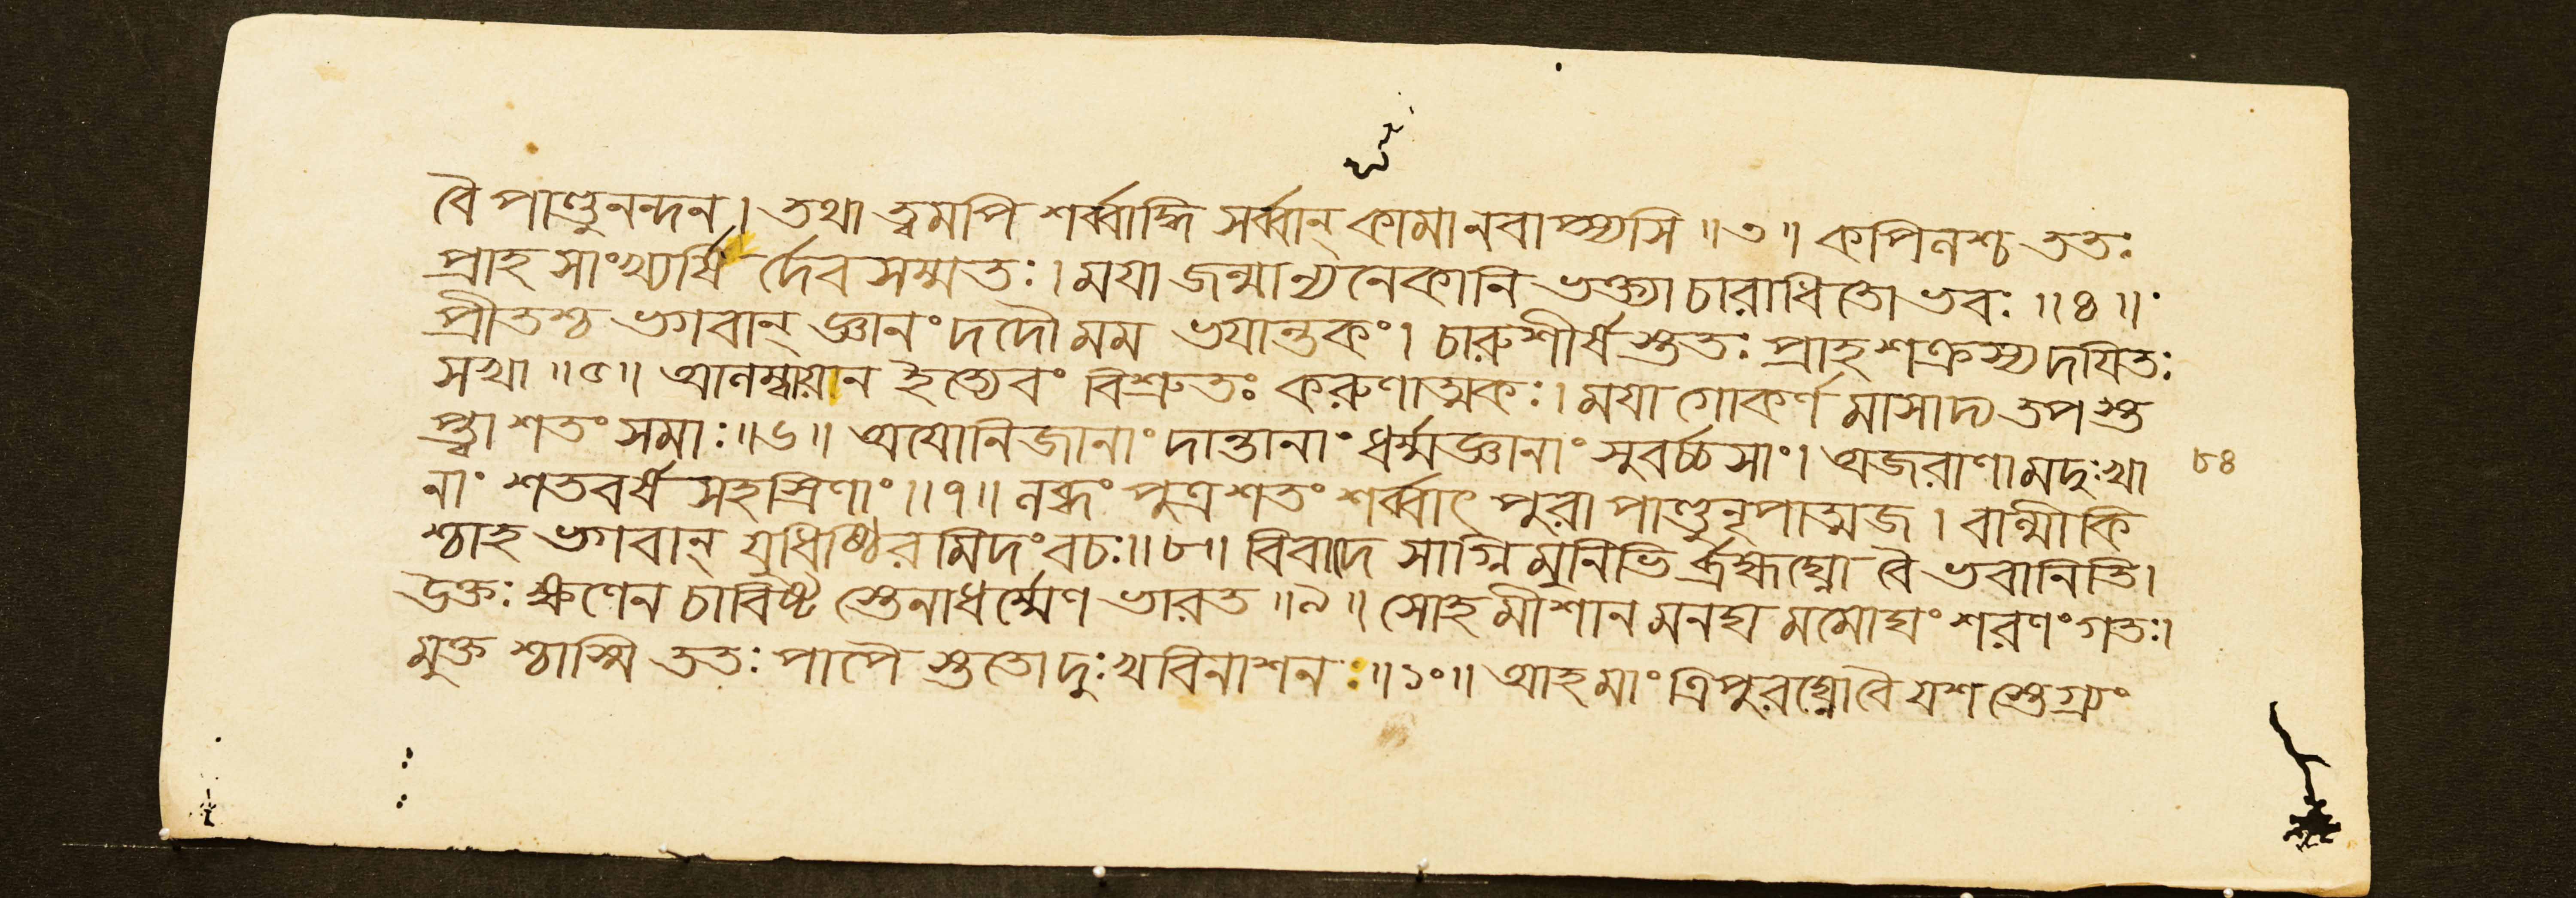 বৈ পাণ্ডুনন্দন। তথা ত্বমপি শর্ব্বাদ্ধি সর্ব্বান্ কামানবাপ্স্যসি॥৩॥ কপিলশ্চ ততঃ
প্রাহ সাংখ্যর্ষি র্দেবসম্মতঃ। ময়া জন্মান্যনেকানি ভক্ত্যা চারাধিতো ভবঃ॥৪॥
প্রীতশ্চ ভগবান্ জ্ঞানং দদৌ মম ভয়ান্তকং। চারুশীর্ষস্ততঃ প্রাহ শক্রস্য দয়িতঃ
সখা॥৫॥ আলম্বায়ন ইত্যেবং বিশ্রুতঃ করুণাত্মকঃ। ময়া গোকর্ণমাসাদ্য তপস্ত
প্ত্বা শতং সমাঃ॥৬॥ অযোনিজানাং দান্তানাং ধর্ম্মজ্ঞানাং সুবর্চ্চসাং। অজরাণামদুঃখা
নাং শতবর্ষসহস্রিণাং॥৭॥ লব্ধং পুত্রশতং শর্ব্বাৎ পুরা পাণ্ডুনৃপাত্মজ। বাল্মীকি
শ্চাহ ভগবান্ যুধিষ্ঠিরমিদং বচঃ॥৮॥ বিবাদে সাগ্নিমুনিভি র্ব্রহ্মঘ্নো বৈ ভবানিতি।
উক্তঃ ক্ষণেন চাবিষ্ট স্তেনাধর্ম্মেণ ভারত॥৯॥ সোহমীশানমনঘমমোঘং শরণং গতঃ।
মুক্তশ্চাস্মি ততঃ পাপৈস্ততো দুঃখবিনাশনঃ॥১০॥ আহ মাং ত্রিপুরঘ্নো বৈ যশস্তেগ্র্যং
৮৪